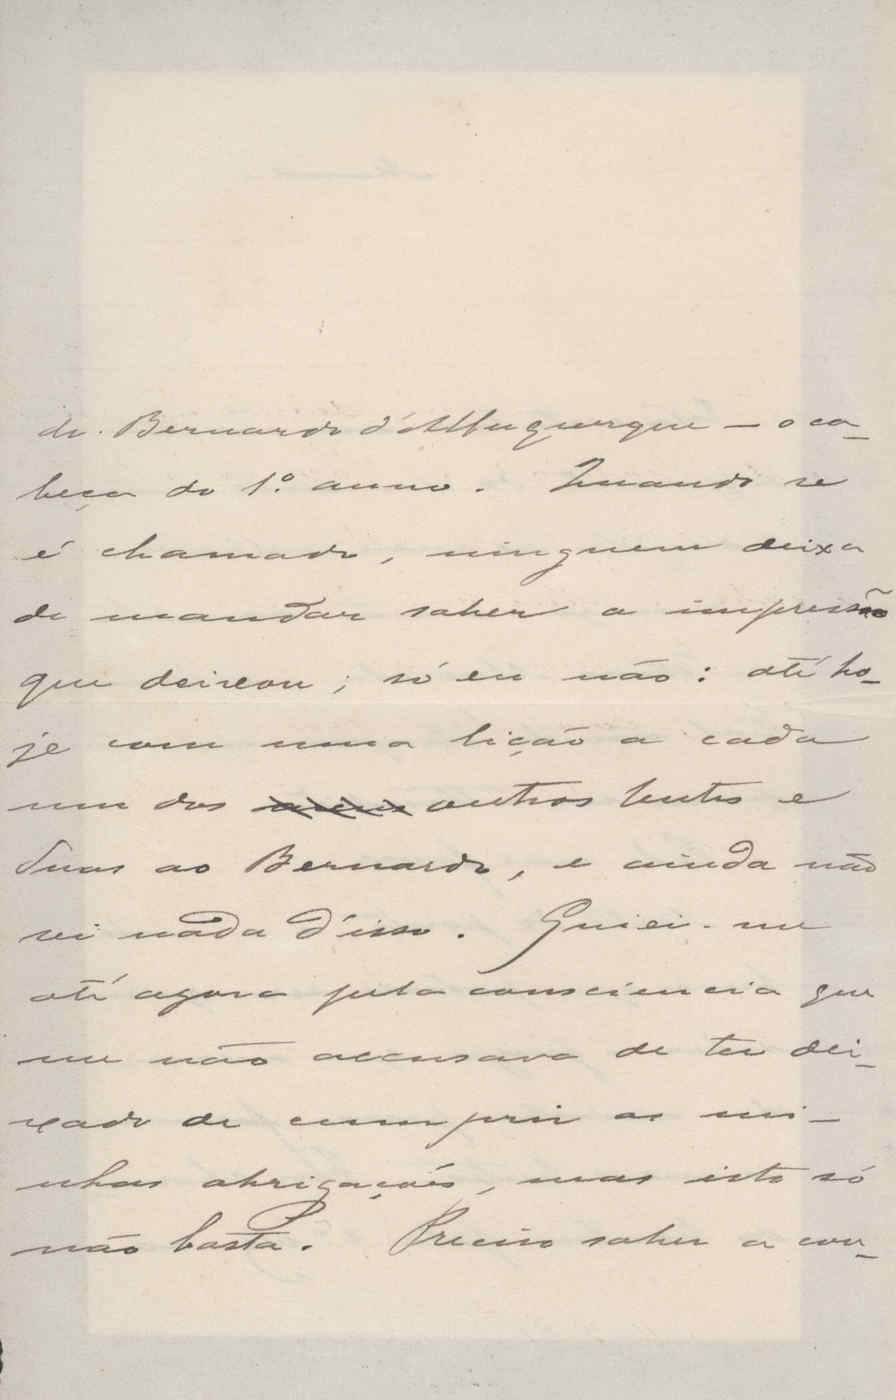 de Bernardo d'Albuquerque — o ca-
beça do 1.º anno. Quando se
é chamado, ninguem deixa
de mandar saber a impressão
que deixou; só eu não: até ho-
je com uma lição a cada
um dos outros lentes e
duas ao Bernardo, e ainda não
sei nada d'isso. Guiei-me
até agora pela consciencia que
me não accusava de ter dei-
xado de cumprir as mi-
nhas obrigações, mas isto só
não basta. Preciso saber a con-